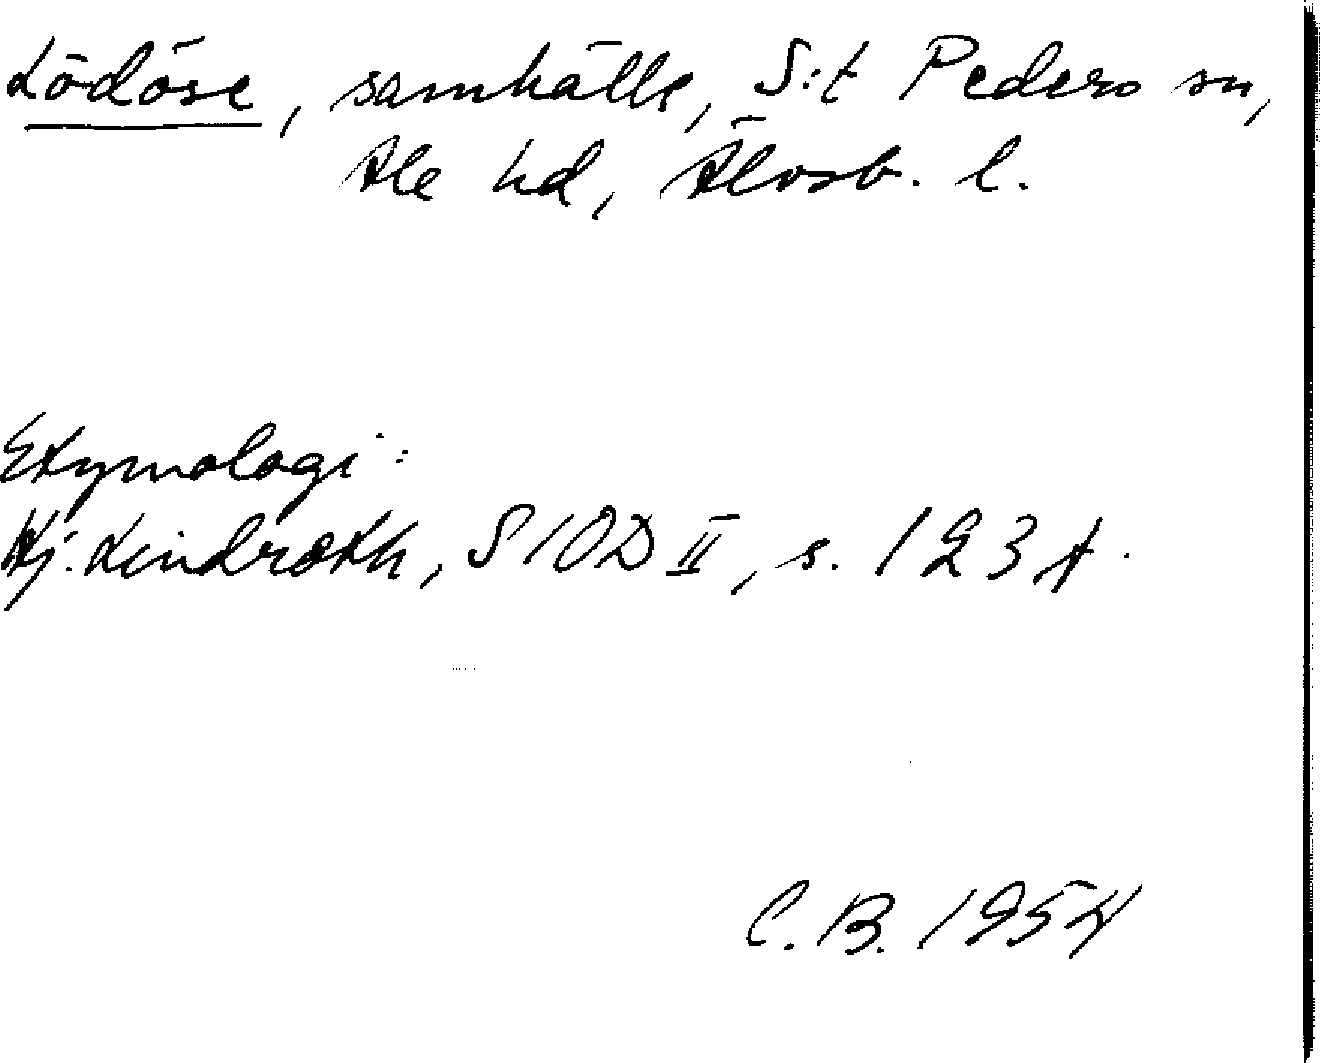 Lödöse, samhälle, S:t Peders sn,
Ale hd, Älvsb. l.
Etymologi:
Hj. Lindroth, SIOD II, s. 123 f.
C. B. 1954